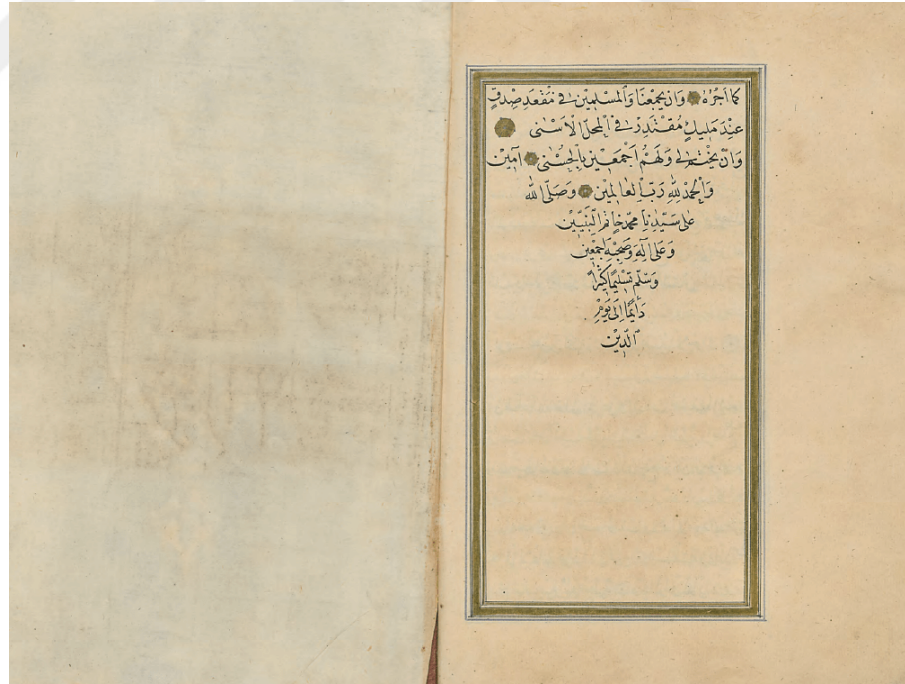 كما اجره وان يجمعنا والمسلمين في مقعد صدق
عند مليك مقتدر في المحل الاسنى
وان يختم لي ولهم اجمعين بالحسنى آمين
والحمد لله رب العالمين وصلى الله
على سيدنا محمد خاتم النبيين
وعلى آله وصحبه اجمعين
وسلم تسليما كثيرا
دايما الى يوم
الدين